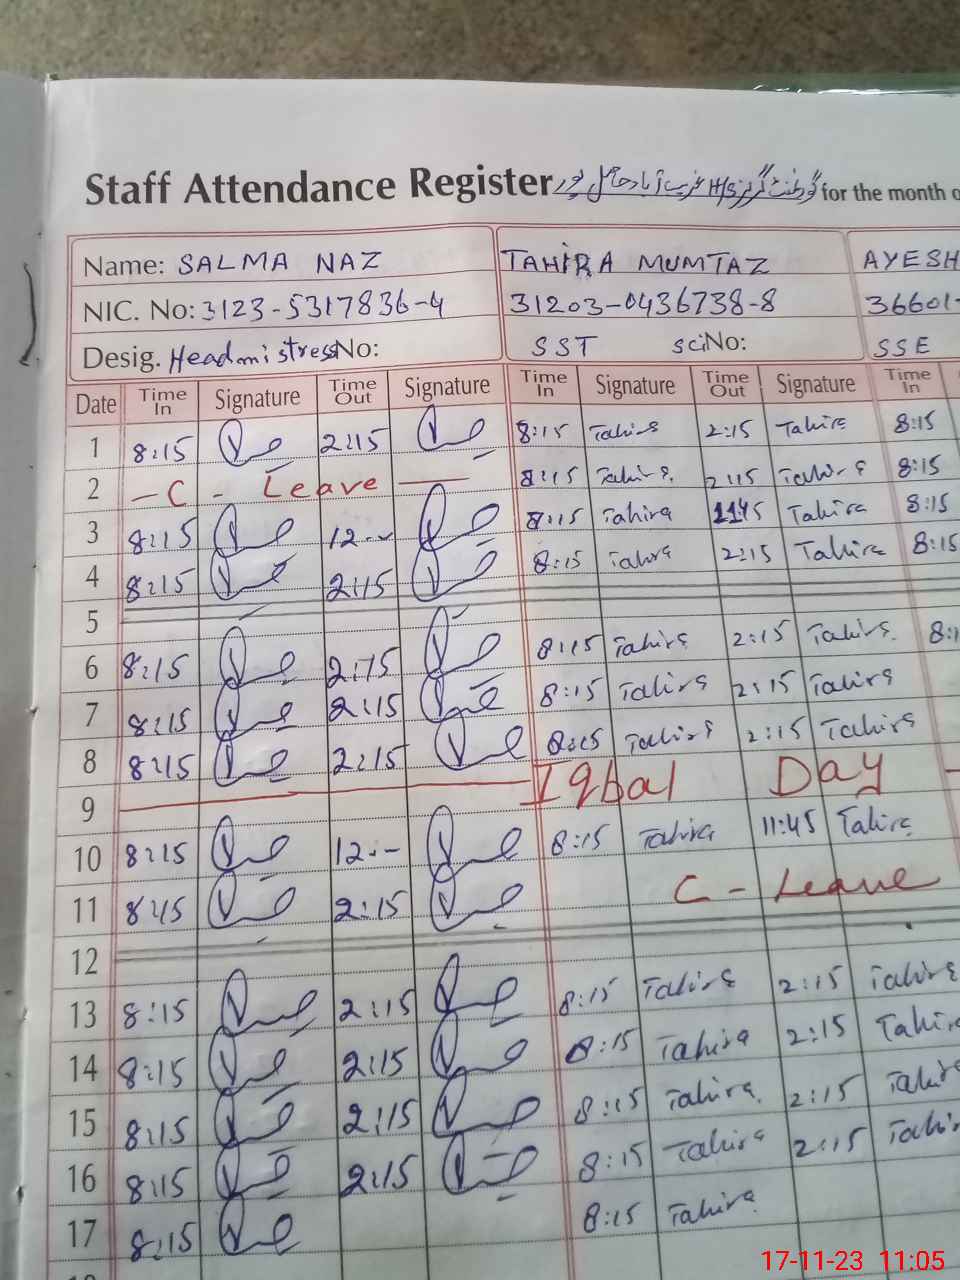 Staff Attendance Register گورنمنٹ گرلز H/S غریب آباد for the month o
Name: SALMA NAZ TAHIRA MUMTAZ AYESH
NIC. No: 3123-5317836-4 31203-0436738-8 36601-
Desig. Headmistress No: SST sci No: SSE
Date Time In Signature Time Out Signature Time In Signature Time Out Signature Time In
1 8:15 2:15 8:15 Tahira 2:15 Tahira 8:15
2 - C - Leave 8:15 Tahira 2:15 Tahira 8:15
3 8:15 12-- 8:15 Tahira 1145 Tahira 8:15
4 8:15 2:15 8:15 Tahira 2:15 Tahira 8:15
5
6 8:15 2:15 8:15 Tahira 2:15 Tahira 8:1
7 8:15 2:15 8:15 Tahira 2:15 Tahira
8 8:15 2:15 8:15 Tahira 2:15 Tahira
9 Iqbal Day
10 8:15 12-- 8:15 Tahira 11:45 Tahira
11 8:15 2:15 C - Leave
12
13 8:15 2:15 8:15 Tahira 2:15 Tahira
14 8:15 2:15 8:15 Tahira 2:15 Tahira
15 8:15 2:15 8:15 Tahira 2:15 Tahira
16 8:15 2:15 8:15 Tahira 2:15 Tahir
17 8:15 8:15 Tahira
17-11-23 11:05